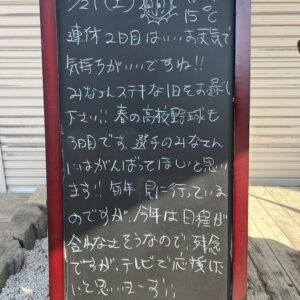 3/21(土) 15℃
連休2日目はいいお天気で
気持ちがいいですね!!
みなさんステキな1日をお過し
下さい!! 春の高校野球も
3日目です。選手のみなさん
にはがんばってほしいと思い
ます!! 毎年 見に行っている
のですが、今年は日程が
合わなさそうなので、残念
ですが、テレビで応援した
いと思いまーす!!